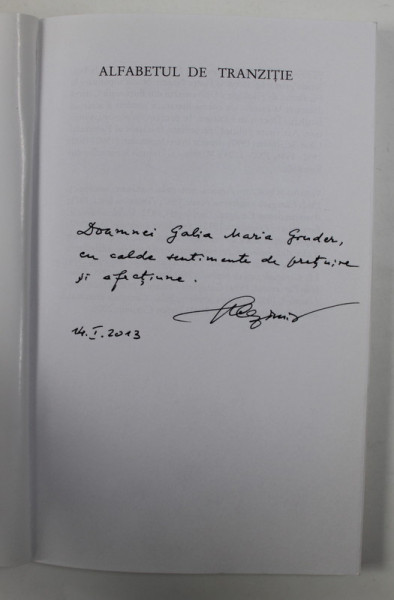 ALFABETUL DE TRANZIȚIE
Doamnei Galia Maria Gruder,
cu calde sentimente de prețuire
și afecțiune.
14.I.2013